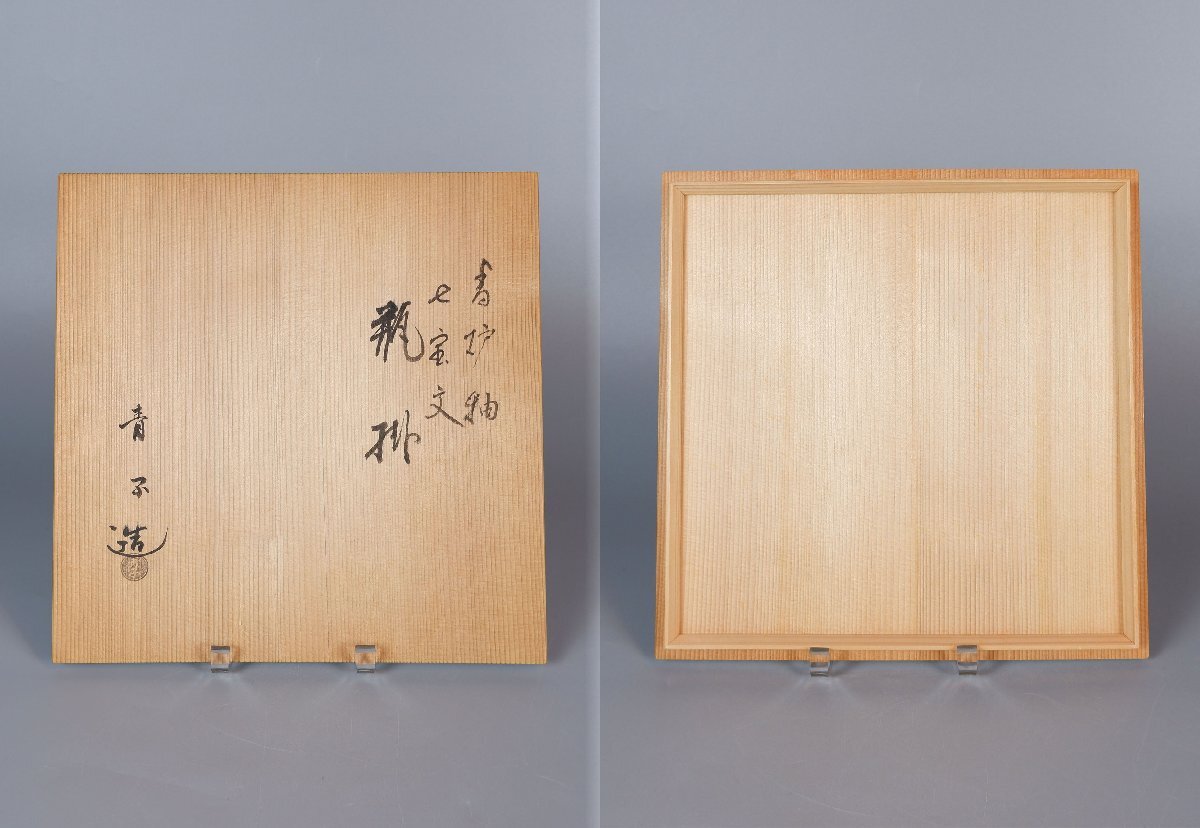 青炉釉
七宝文
瓶掛
青不造